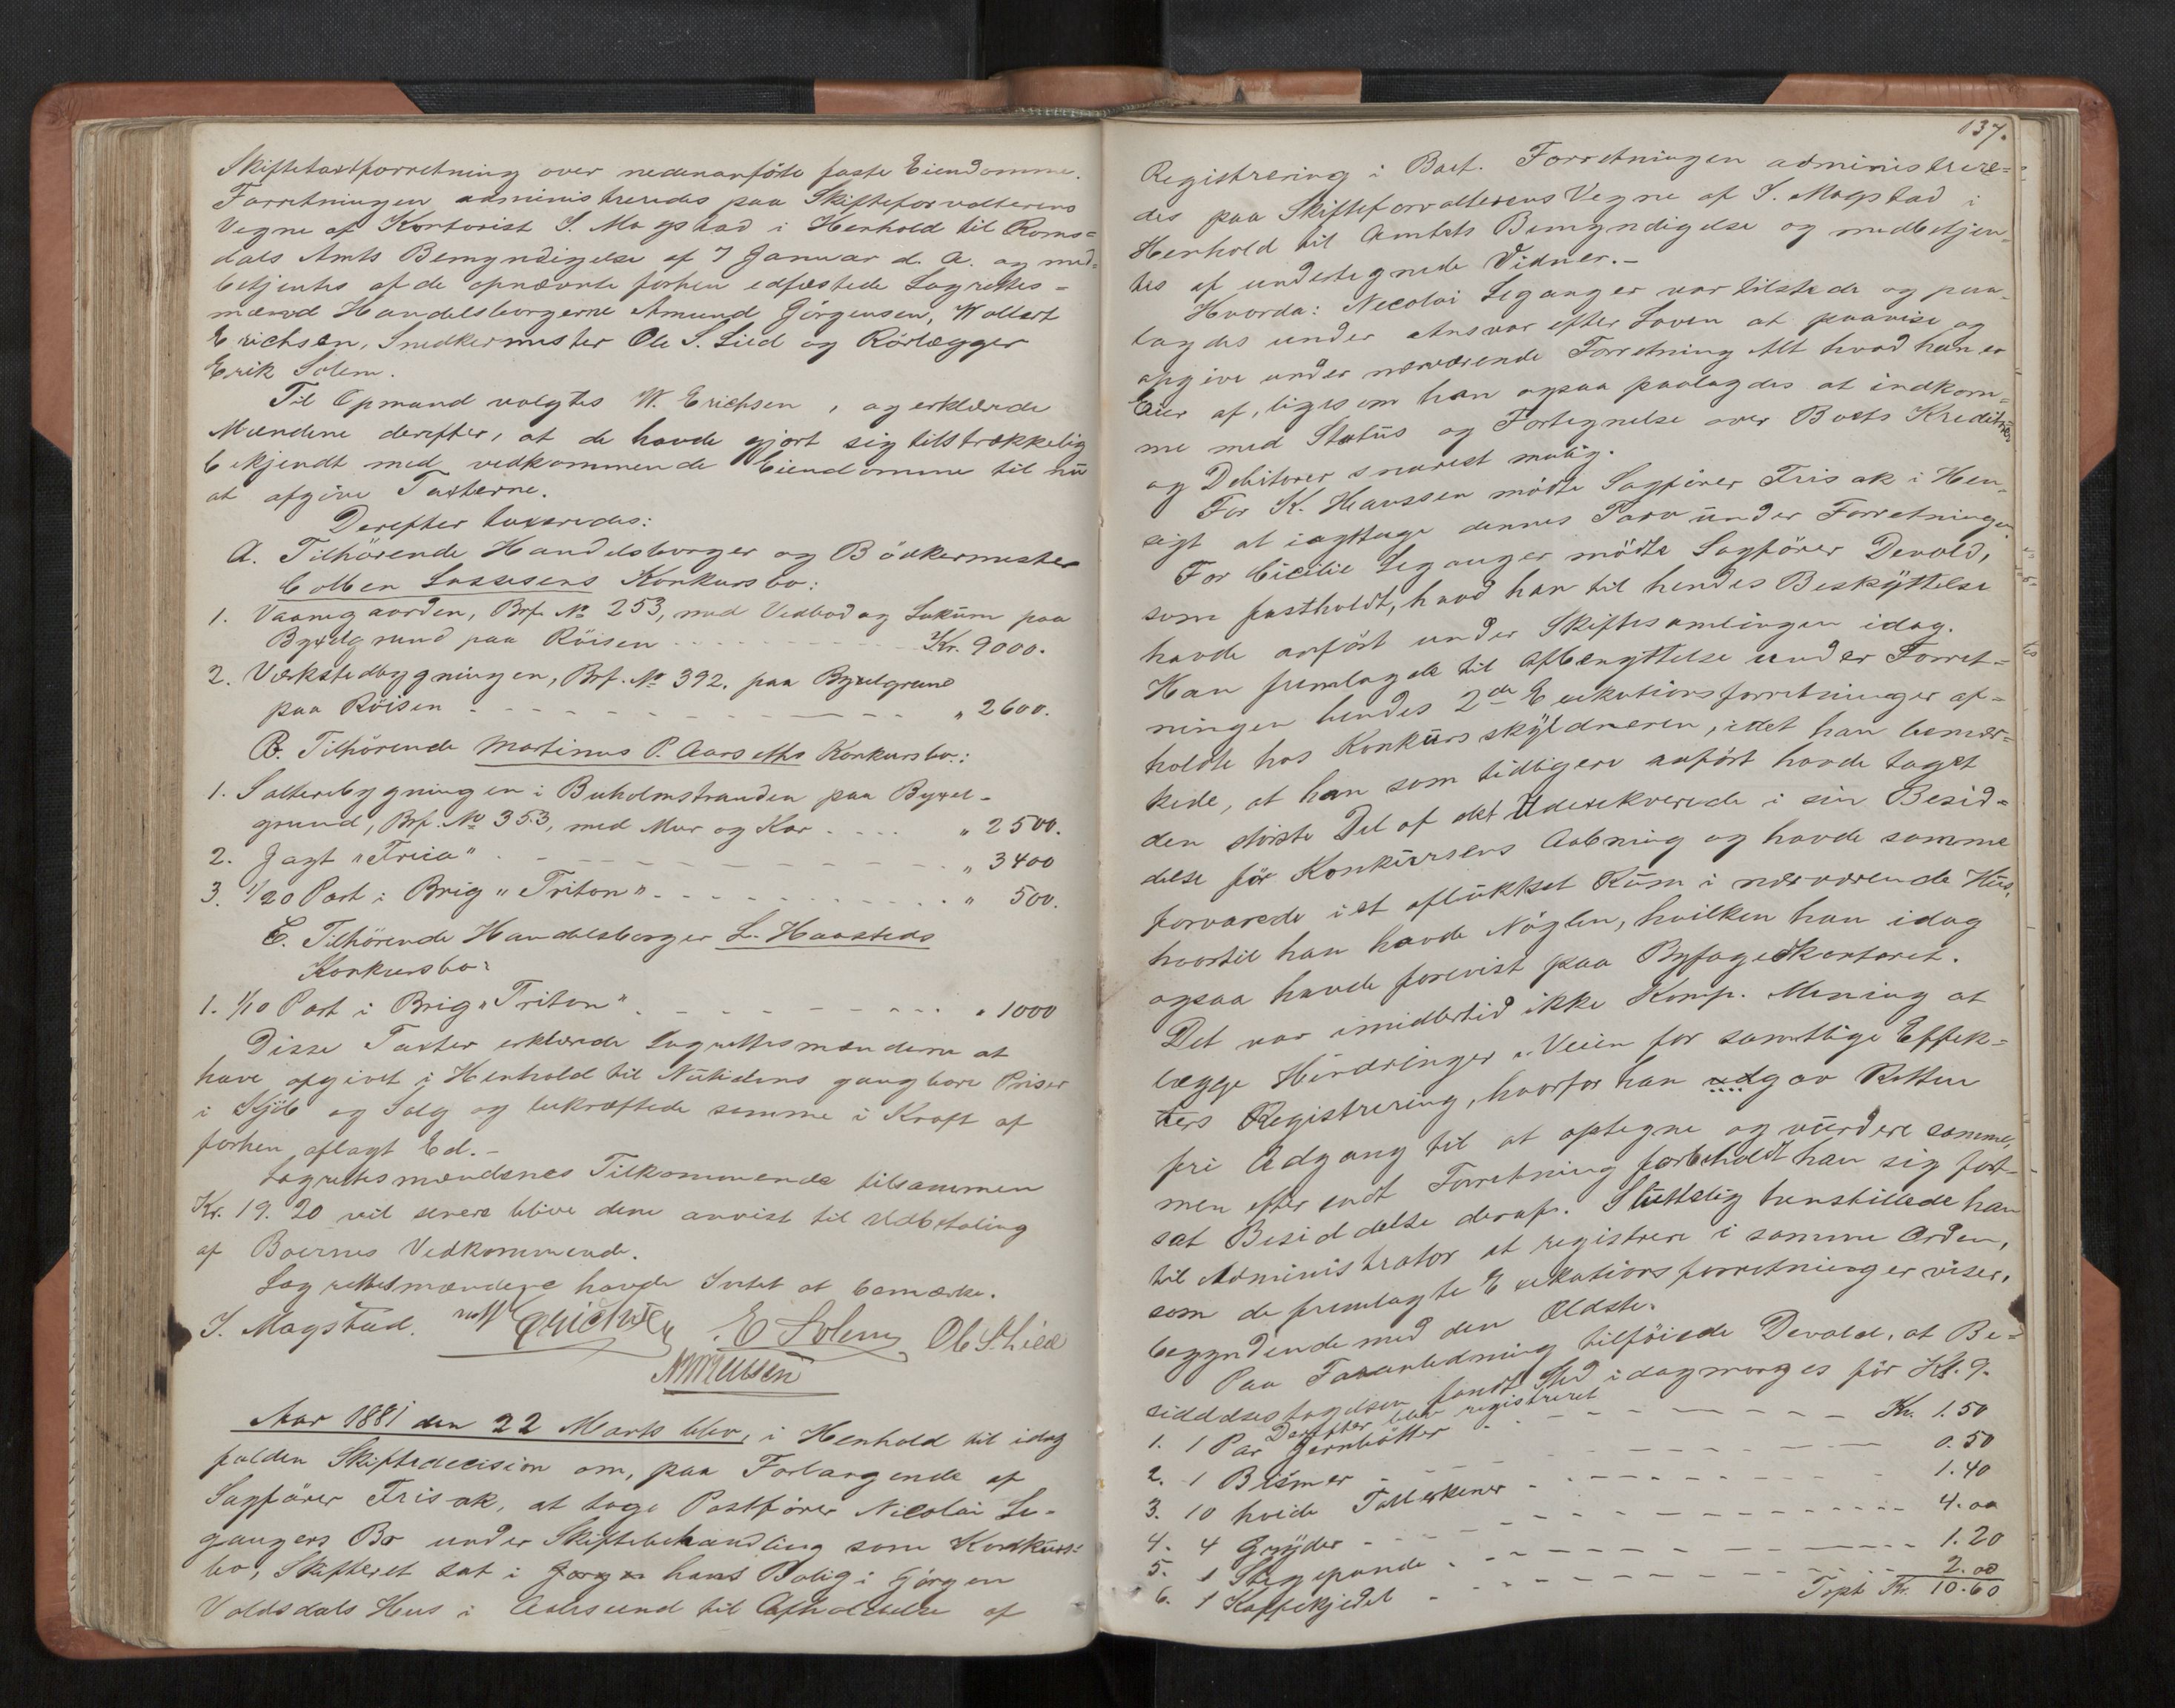 Skiftetaxtforretning over nedenanförte faste Eiendomme.
Forretningen administreredes paa Skifteforvalterens
Vegne af Kontorist I. Magstad i Henhold til Roms=
dals Amts Bemyndigelse af 7 Januar d. A. og med=
betjentes af de opnævnte forhen edfæstede Lagrettes=
mænd Handelsborgerne Amund Jörgensen, Wollert
Erichsen, Snedkermester Ole S. Lied og Rörlægger
Erik Solem.
Til Opmand valgtes W. Erichsen, og erklærede
Mændene derefter, at de havde gjort sig tilstrækkelig
bekjendt med vedkommende Eiendomme til nu
at afgive Taxterne.
Derefter taxeredes:
A. Tilhörende Handelsborger og Bödkermester
Colben Lassesens Konkursbo:
1. Vaanegaarden, Brf. No 253, med Vedbod og Lokum paa
Byxelgrund paa Röisen - - - Kr. 9000.
2. Værkstedbygningen, Brf. No 392. paa Byxelgrund
paa Röisen - - - " 2600.
B. Tilhörende Martinus P. Aarseths Konkursbo:
1. Salteribygningen i Buholmstranden paa Byxel-
grund, Brf. No 353, med Mur og Kar .... " 2500.
2. Jagt "Freia" - - - " 3400
3. 1/20 Part i Brig "Triton" - - - " 500.
C. Tilhörende Handelsborger L. Haasteds
Konkursbo:
1. 1/10 Part i Brig "Triton" - - - " 1000
Disse Taxter erklærede Lagrettesmændene at
have afgivet i Henhold til Nutidens gangbare Priser
i Kjöb og Salg og bekræftede samme i Kraft af
forhen aflagt Ed.-
Lagrettesmændenes Tilkommende tilsammen
Kr. 19.20 vil senere blive dem anvist til Udbetaling
af Boernes Vedkommende.
Lagrettesmændene havde Intet at bemærke.
I. Magstad. W Erichsen E Solem Ole S. Lied
Aar 1881 den 22 Marts blev, i Henhold til idag
falden Skiftedecision om, paa Forlangende af
Sagförer Frisak, at tage Postförer Nicolai Le-
gangers Bo under Skiftebehandling som Konkurs=
bo, Skifteret sat i hans Bolig i Jörgen
Voldsdals Hus i Aalesund til Afholdelse af
137.
Registrering i Boet. Forretningen administrere=
des paa Skifteforvalterens Vegne af I. Magstad i
Henhold til Amtets Bemyndigelse og medbetjen-
tes af undertegnede Vidner.-
Hvorda: Necolai Leganger var tilstede og paa-
lagdes under Ansvar efter Loven at paavise og
opgive under nærværende Forretning Alt hvad han er
Eier af, ligesom han ogsaa paalagdes at indkom-
me med Status og Fortegnelse over Boets Kreditorer
og Debitorer snarest mulig.
For K. Hanssen mödte Sagförer Frisak i Hen-
sigt at iagttage dennes Tarv under Forretningen
For Cicilie Leganger mödte Sagförer Devold,
som fastholdt, hvad han til hendes Beskyttelse
havde anfört under Skiftesamlingen idag.
Han fremlagde til Afbenyttelse under Forret=
ningen hendes 2de Exekutionsforretninger af=
holdte hos Konkursskyldneren, idet han bemær=
kede, at han som tidligere anfört havde taget
den störste Del af det Udexekverede i sin Besid=
delse för Konkursens Aabning og havde samme
forvarede i et aflukket Rum i nærværende Hus,
hvortil han havde Nöglen, hvilken han idag
ogsaa havde forevist paa Byfogedkontoret.
Det var imidlertid ikke Komp. Mening at
lægge Hindringer i Veien for samtlige Effek=
ters Registrering, hvorfor han udgav Retten
fri Adgang til at optegne og vurdere samme,
men efter endt Forretning forbeholdt han sig fort-
sat Besiddelse deraf. Sluttelig henstillede han
til Administrator at registrere i samme Orden,
som de fremlagte Exekutionsforretninger viser,
begyndende med den Ældste.
Paa Foranledning tilföiede Devold, at Be=
siddelsestagelsen fandt Sted idagmorges för Kl. 9.
Derefter blev registreret
1. 1 Par Jernbötter - - - Kr. 1.50
2. 1 Bismer - - - 0.50
3. 10 hvide Tallerkener - - - 1.40
4. 4 Gryder - - - 4.00
5. 1 Stegepande - - - 1.20
6. 1 Kaffekjedel - - - 2.00
Trpt Kr. 10.60